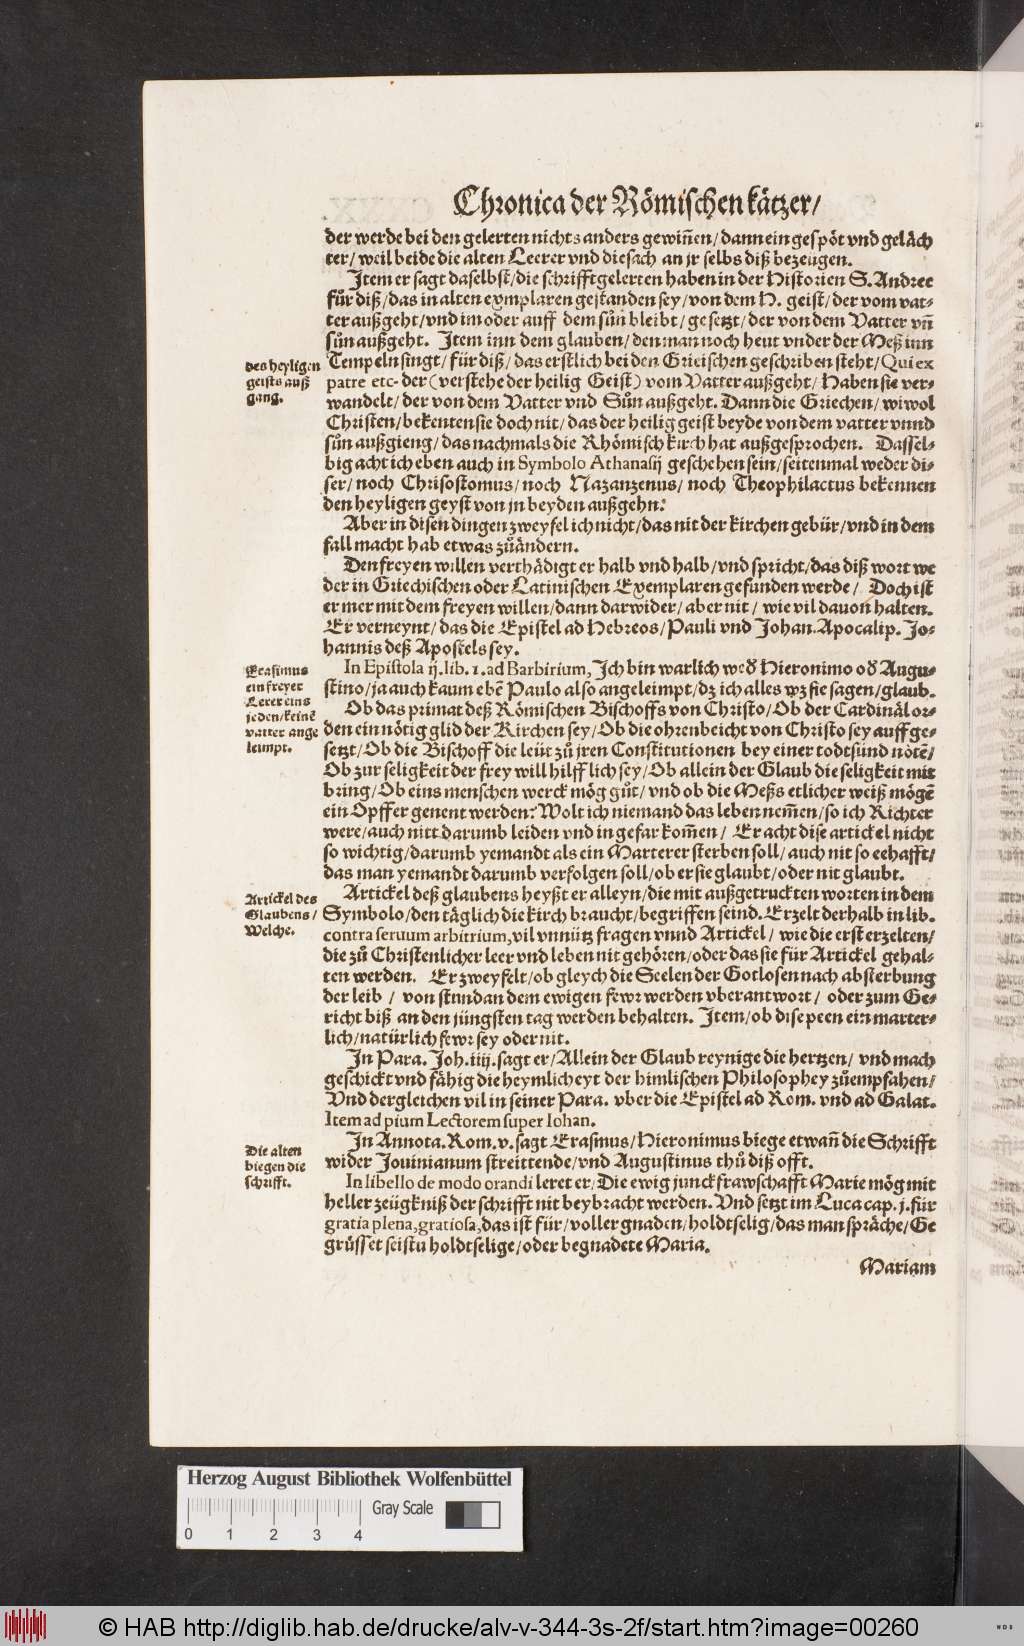 Chronica der Römischen kätzer/
der werde bei den gelerten nichts anders gewiñen/ dann ein gespöt vnd geläch
ter/ weil beide die alten Leerer vnd die sach an jr selbs diß bezeugen.
Item er sagt daselbst/ die schrifftgelerten haben in der Historien S. Andree
für diß/ das in alten exmplaren gestanden sey/ von dem H. geist/ der vom vat-
ter außgeht/ vnd im oder auff dem sůn bleibt/ gesetzt/ der von dem Vatter vñ
sůn außgeht. Item inn dem glauben/ den man noch heut vnder der Meß inn
Tempeln singt/ für diß/ das erstlich bei den Grieischen geschriben steht/ Qui ex
patre etc- der (verstehe der heilig Geist) vom Vatter außgeht/ Haben sie ver-
wandelt/ der von dem Vatter vnd Sůn außgeht. Dann die Griechen/ wiwol
Christen/ bekenten sie doch nit/ das der heilig geist beyde von dem vatter vnnd
sůn außgieng/ das nachmals die Rhömisch kirch hat außgesprochen. Dassel-
big acht ich eben auch in Symbolo Athanasij geschehen sein/ seitenmal weder di-
ser/ noch Chrisostomus/ noch Nazanzenus/ noch Theophilactus bekennen
den heyligen geyst von jn beyden außgehn.
des heyligen
geists auß
gang.
Aber in disen dingen zweyfel ich nicht/ das nit der kirchen gebür/ vnd in dem
fall macht hab etwas zůändern.
Den freyen willen verthädigt er halb vnd halb/ vnd spricht/ das diß wort we
der in Griechischen oder Latinischen Exemplaren gefunden werde/ Doch ist
er mer mit dem freyen willen/ dann darwider/ aber nit/ wie vil dauon halten.
Er verneynt/ das die Epistel ad Hebreos/ Pauli vnd Johan. Apocalip. Jo-
hannis deß Apostels sey.
In Epistola ij. lib. 1. ad Barbirium, Ich bin warlich wed̃ Hieronimo od̃ Augu-
stino/ ja auch kaum ebẽ Paulo also angeleimpt/ dz ich alles wz sie sagen/ glaub.
Erasimus
ein freyer
Lerer eins
jeden/ keinẽ
vatter ange
leimpt.
Ob das primat deß Römischen Bischoffs von Christo/ Ob der Cardinäl or-
den ein nötig glid der Kirchen sey/ Ob die ohrenbeicht von Christo sey auffge-
setzt/ Ob die Bischoff die leüt zů jren Constitutionen bey einer todtsünd nötẽ/
Ob zur seligkeit der frey will hilfflich sey/ Ob allein der Glaub die seligkeit mit
bring/ Ob eins menschen werck mög gůt/ vnd ob die Meßs etlicher weiß mögẽ
ein Opffer genent werden? Wolt ich niemand das leben nem̃en/ so ich Richter
were/ auch nitt darumb leiden vnd in gefar kom̃en/ Er acht dise artickel nicht
so wichtig/ darumb yemandt als ein Marterer sterben soll/ auch nit so eehafft/
das man yemandt darumb verfolgen soll/ ob er sie glaubt/ oder nit glaubt.
Artickel deß glaubens heyßt er alleyn/ die mit außgetruckten worten in dem
Symbolo/ den täglich die kirch braucht/ begriffen seind. Erzelt derhalb in lib.
contra seruum arbitrium, vil vnnütz fragen vnnd Artickel/ wie die erst erzelten/
die zů Christenlicher leer vnd leben nit gehören/ oder das sie für Artickel gehal-
ten werden. Er zweyfelt/ ob gleych die Seelen der Gotlosen nach absterbung
der leib/ von stundan dem ewigen fewr werden vberantwort/ oder zum Ge-
richt biß an den jüngsten tag werden behalten. Item/ ob dise peen ein marter-
lich/ natürlich fewr sey oder nit.
Artickel des
Glaubens/
Welche.
In Para. Joh. iiij. sagt er/ Allein der Glaub reynige die hertzen/ vnd mach
geschickt vnd fähig die heymlicheyt der himlischen Philosophey zůempfahen/
Vnd dergleichen vil in seiner Para. vber die Epistel ad Rom. vnd ad Galat.
Item ad pium Lectorem super Iohan.
In Annota. Rom. v. sagt Erasmus/ Hieronimus biege etwañ die Schrifft
wider Jouinianum streittende/ vnd Augustinus thů diß offt.
Die alten
biegen die
schrifft.
In libello de modo orandi leret er/ Die ewig junckfrawschafft Marie mög mit
heller zeügkniß der schrifft nit beybracht werden. Vnd setzt im Luca cap. j. für
gratia plena, gratiosa, das ist für/ voller gnaden/ holdtselig/ das man spräche/ Ge
grüsset seistu holdtselige/ oder begnadete Maria.
Mariam
Herzog August Bibliothek Wolfenbüttel
0 1 2 3 4
Gray Scale
© HAB http://diglib.hab.de/drucke/alv-v-344-3s-2f/start.htm?image=00260